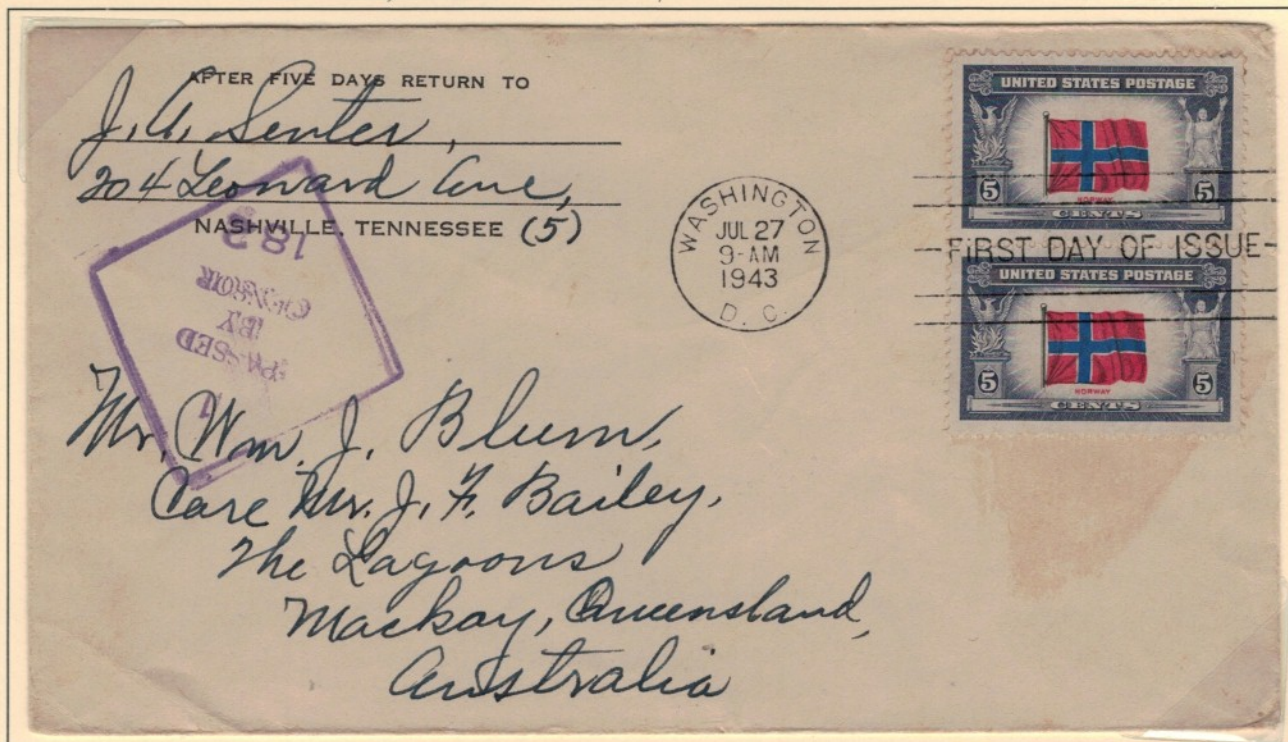 AFTER FIVE DAYS RETURN TO
J. A. Senter,
204 Leonard Ave,
NASHVILLE, TENNESSEE (5)
PASSED
BY
CENSOR
182
WASHINGTON
JUL 27
9-AM
1943
D. C.
UNITED STATES POSTAGE
NORWAY
5 5
CENTS
FIRST DAY OF ISSUE
UNITED STATES POSTAGE
NORWAY
5 5
CENTS
Mr. Wm. J. Blum,
Care Mr. J. F. Bailey,
The Lagoons
Mackay, Queensland,
Australia